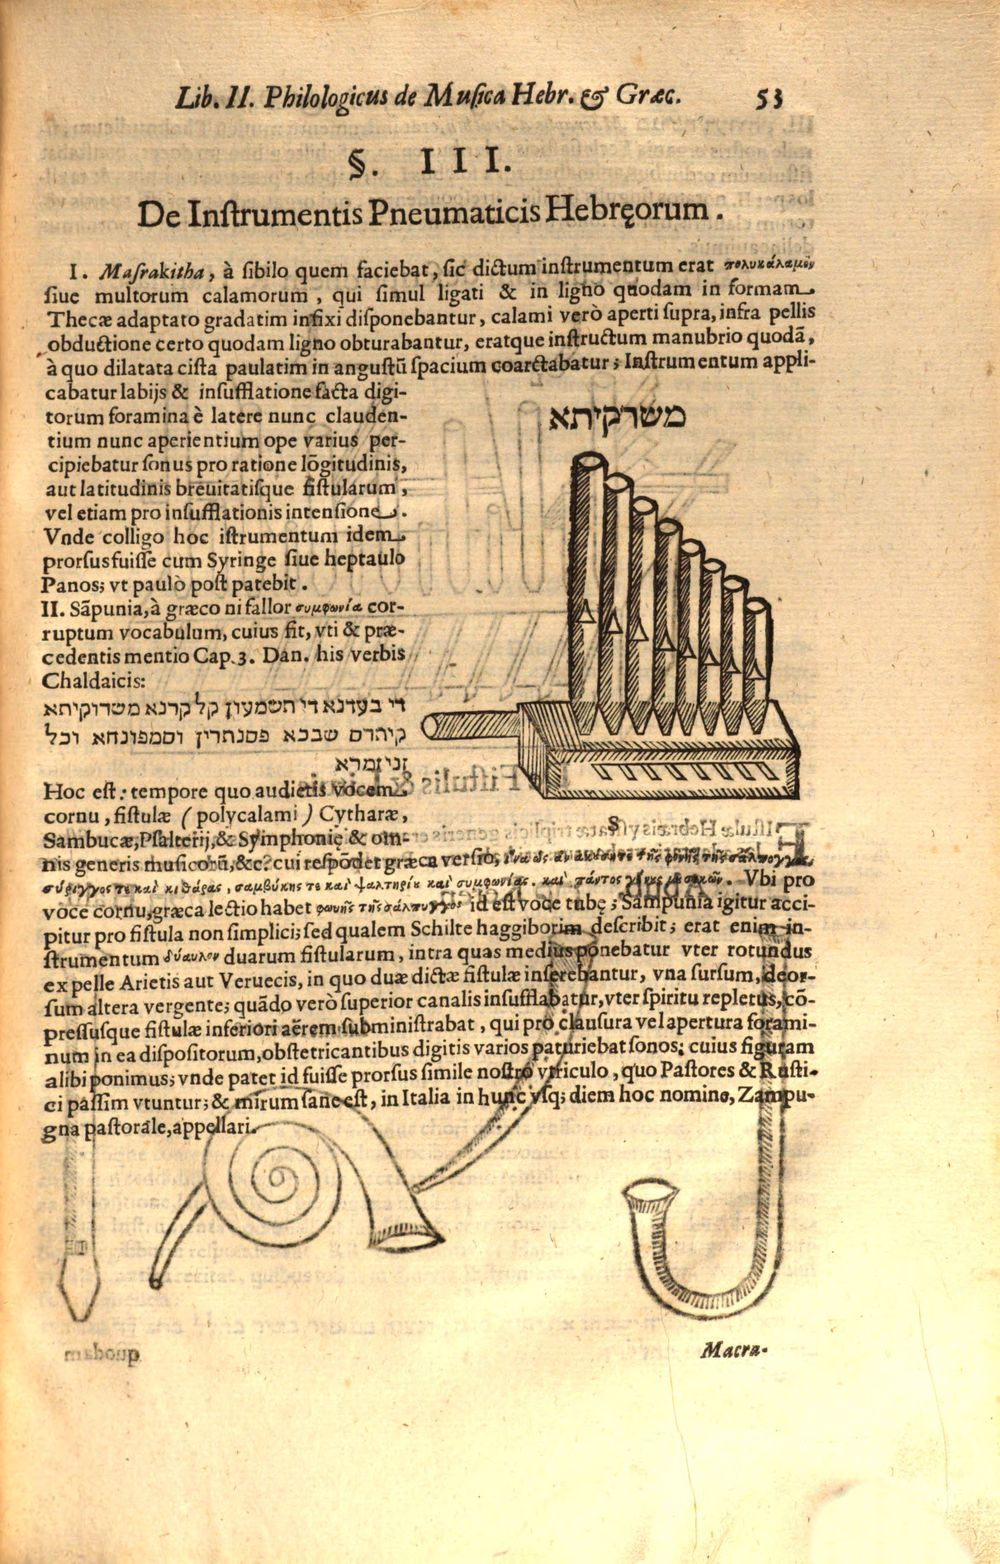 Lib. II. Philologicus de Musica Hebr. & Græc. 53
§. III.
De Instrumentis Pneumaticis Hebręorum.
I. Masrakitha, à sibilo quem faciebat, sic dictum instrumentum erat πολυκάλαμον
siue multorum calamorum, qui simul ligati & in ligno quodam in formam
Thecæ adaptato gradatim infixi disponebantur, calami verò aperti supra, infra pellis
obductione certo quodam ligno obturabantur, eratque instructum manubrio quodã,
à quo dilatata cista paulatim in angustũ spacium coarctabatur; Instrumentum appli-
cabatur labijs & insufflatione facta digi-
torum foramina è latere nunc clauden-
tium nunc aperientium ope varius per-
cipiebatur sonus pro ratione lõgitudinis,
aut latitudinis breuitatisque fistularum,
vel etiam pro insufflationis intensione.
Vnde colligo hoc istrumentum idem
prorsus fuisse cum Syringe siue heptaulo
Panos; vt paulò post patebit.
משרקיתא
II. Sãpunia, à græco ni fallor συμφωνία cor-
ruptum vocabulum, cuius fit, vti & præ-
cedentis mentio Cap. 3. Dan. his verbis
Chaldaicis:
די בעדנא די תשמעון קל קרנא משרוקיתא
קיתרס שבכא פסנתרין וסמפונחא וכל
זני זמרא
Hoc est: tempore quo audietis vocem
cornu, fistulæ (polycalami) Cytharæ,
Sambucæ, Psalterij, & Symphonię & om-
nis generis musicorũ, &c. cui respõdet græca versio,
συριγγος τε και κιθάρας, σαμβύκης τε και ψαλτηρίκ και συμφωνίας. και πάντος Vbi pro
voce cornu, græca lectio habet φωνῆς τῆς σάλπυγγος id est voce tubę; Sampunia igitur acci-
pitur pro fistula non simplici; sed qualem Schilte haggiborim describit; erat enim in-
strumentum δύαυλον duarum fistularum, intra quas medius ponebatur vter rotundus
ex pelle Arietis aut Veruecis, in quo duæ dictæ fistulæ inserebantur, vna sursum, deor-
sum altera vergente; quãdo verò superior canalis insufflabatur, vter spiritu repletus, cõ-
pressusque fistulæ inferiori aërem subministrabat, qui pro clausura vel apertura forami-
num in ea dispositorum, obstetricantibus digitis varios paturiebat sonos; cuius figuram
alibi ponimus; vnde patet id fuisse prorsus simile nostro vtriculo, quo Pastores & Rusti-
ci passim vtuntur; & mirum sane est, in Italia in hunc vsq; diem hoc nomine, Zampu-
gna pastorale, appellari.
Macra-